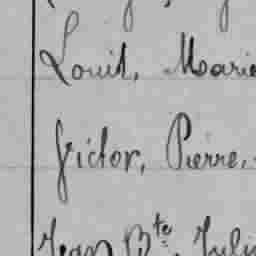 Louis, Marie
Victor, Pierre,
Jean Bte, Juli